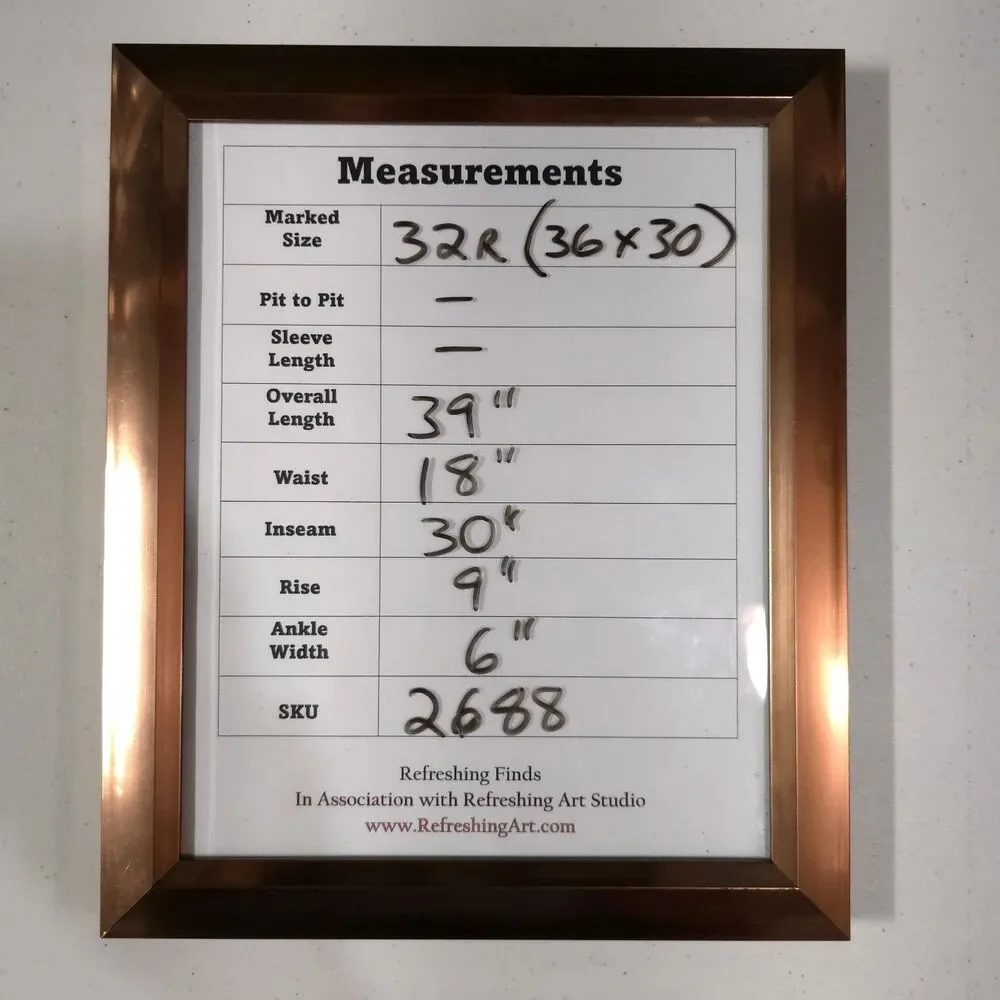 Measurements
Marked
Size
32R (36x30)
Pit to Pit
—
Sleeve
Length
—
Overall
Length
39"
Waist
18"
Inseam
30"
Rise
9"
Ankle
Width
6"
SKU
2688
Refreshing Finds
In Association with Refreshing Art Studio
www.RefreshingArt.com